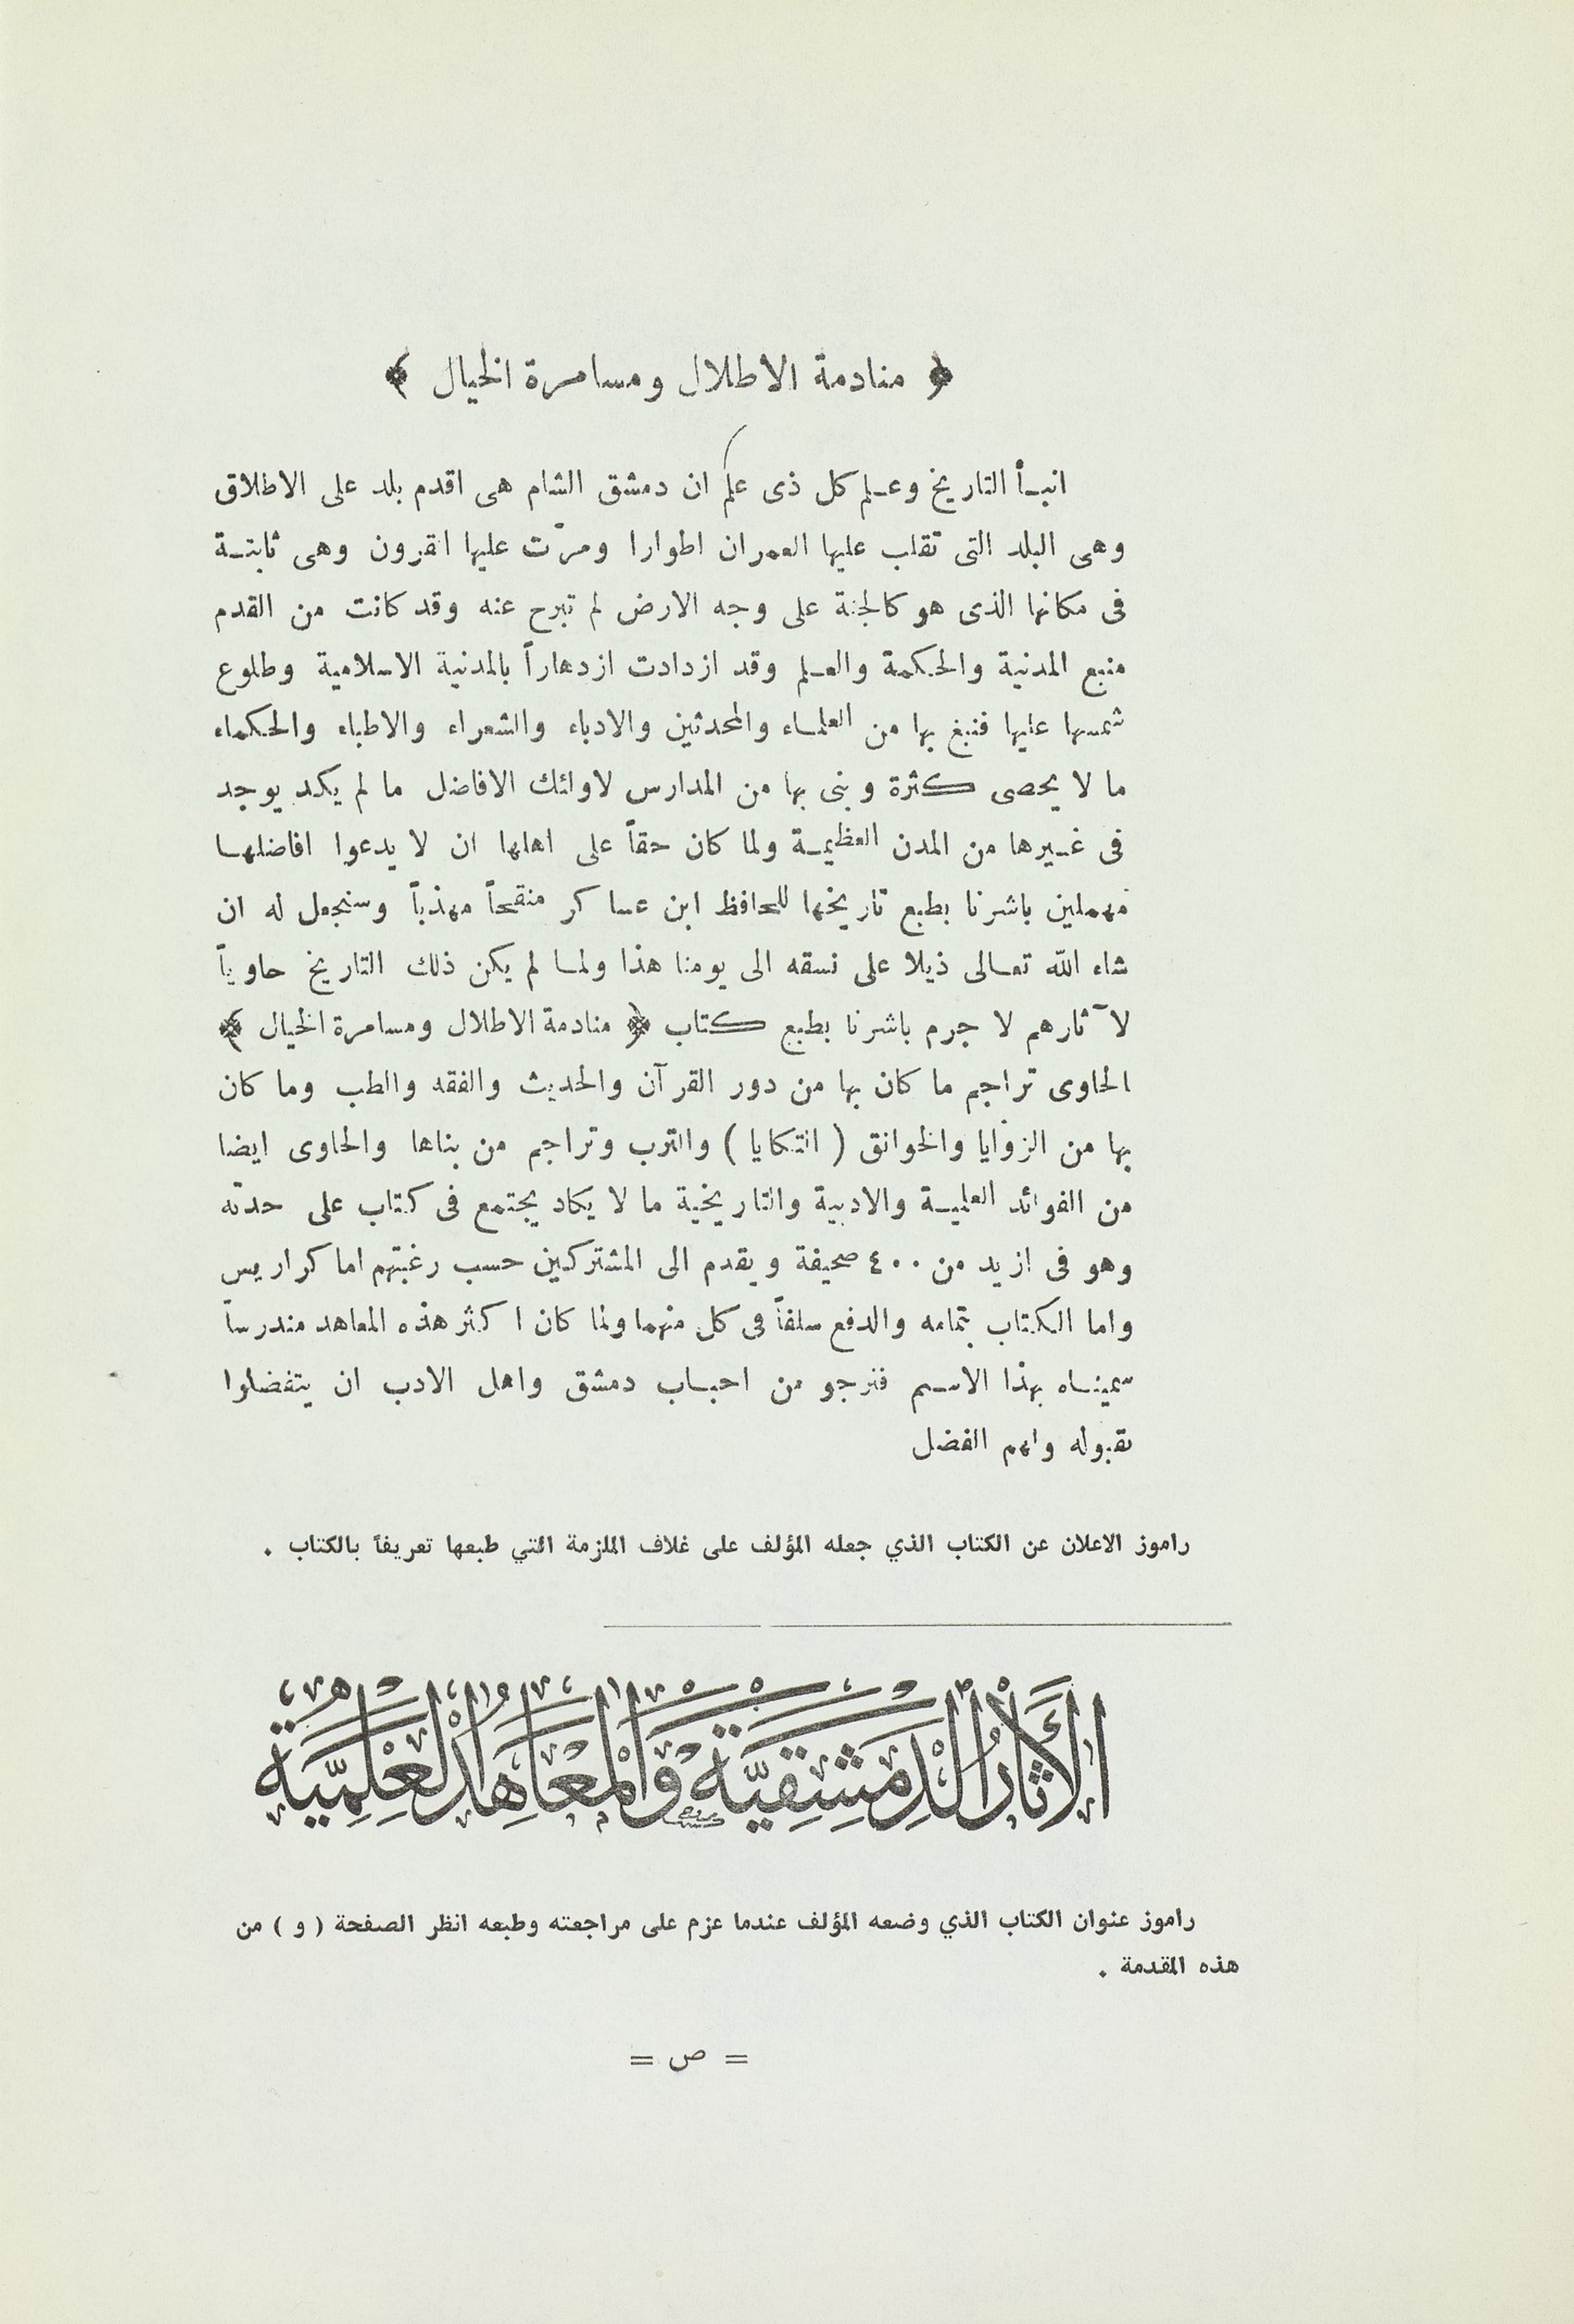 ﴿ منادمة الاطلال ومسامرة الخيال ﴾
انبـأ التاريخ وعـلم كل ذى علم ان دمشق الشام هى اقدم بلد على الاطلاق
وهى البلد التى تقلب عليها العمران اطوارا ومرّت عليها القرون وهى ثابتـة
فى مكانها الذى هو كالجنة على وجه الارض لم تبرح عنه وقد كانت من القدم
منبع المدنية والحكمة والعـلم وقد ازدادت ازدهاراً بالمدنية الاسلامية وطلوع
شمسها عليها فنبغ بها من العلمـاء والمحدثين والادباء والشعراء والاطباء والحكماء
ما لا يحصى كثرة وبنى بها من المدارس لاوائك الافاضل ما لم يكد يوجد
فى غـيرها من المدن العظيمـة ولما كان حقاً على اهلها ان لا يدعوا افاضلهـا
مهملين باشرنا بطبع تاريخها للحافظ ابن عساكر منقحاً مهذباً وسنجعل له ان
شاء الله تعـالى ذيلا على نسقه الى يومنا هذا ولمـا لم يكن ذلك التاريخ حاوياً
لآثارهم لا جرم باشرنا بطبع كتاب ﴿ منادمة الاطلال ومسامرة الخيال ﴾
الحاوى تراجم ما كان بها من دور القرآن والحديث والفقه والطب وما كان
بها من الزوايا والخوانق ( التكايا ) والترب وتراجم من بناها والحاوى ايضا
من الفوائد العلميـة والادبية والتاريخية ما لا يكاد يجتمع فى كتاب على حدته
وهو فى ازيد من ٤٠٠ صحيفة ويقدم الى المشتركين حسب رغبتهم اما كراريس
واما الكتاب بتمامه والدفع سلفاً فى كل منهما ولما كان اكثر هذه المعاهد مندرساً
سمينـاه بهذا الاسـم فنرجو من احبـاب دمشق واهل الادب ان يتفضلوا
بقبوله ولهم الفضل
راموز الاعلان عن الكتاب الذي جعله المؤلف على غلاف الملزمة التي طبعها تعريفاً بالكتاب .
الآثَارُ الدِّمَشْقِيَّة وَالْمَعَاهِدُ الْعِلْمِيَّة
راموز عنوان الكتاب الذي وضعه المؤلف عندما عزم على مراجعته وطبعه انظر الصفحة ( و ) من
هذه المقدمة .
= ص =